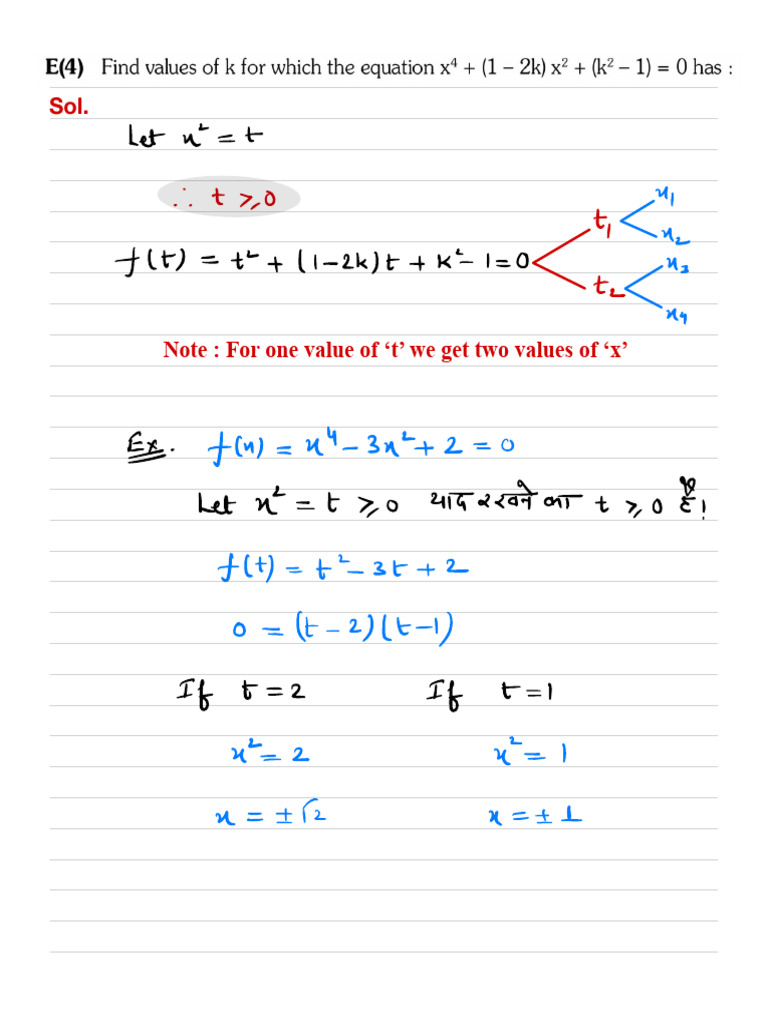 E(4) Find values of k for which the equation x⁴ + (1 – 2k) x² + (k² – 1) = 0 has :
Sol.
Let x² = t
∴ t ≥ 0
f(t) = t² + (1-2k)t + k² - 1 = 0
t₁
t₂
x₁
x₂
x₃
x₄
Note : For one value of ‘t’ we get two values of ‘x’
Ex. f(x) = x⁴ - 3x² + 2 = 0
Let x² = t ≥ 0 याद रखने का t ≥ 0 है!
f(t) = t² - 3t + 2
0 = (t - 2)(t - 1)
If t = 2 If t = 1
x² = 2 x² = 1
x = ± √2 x = ± 1